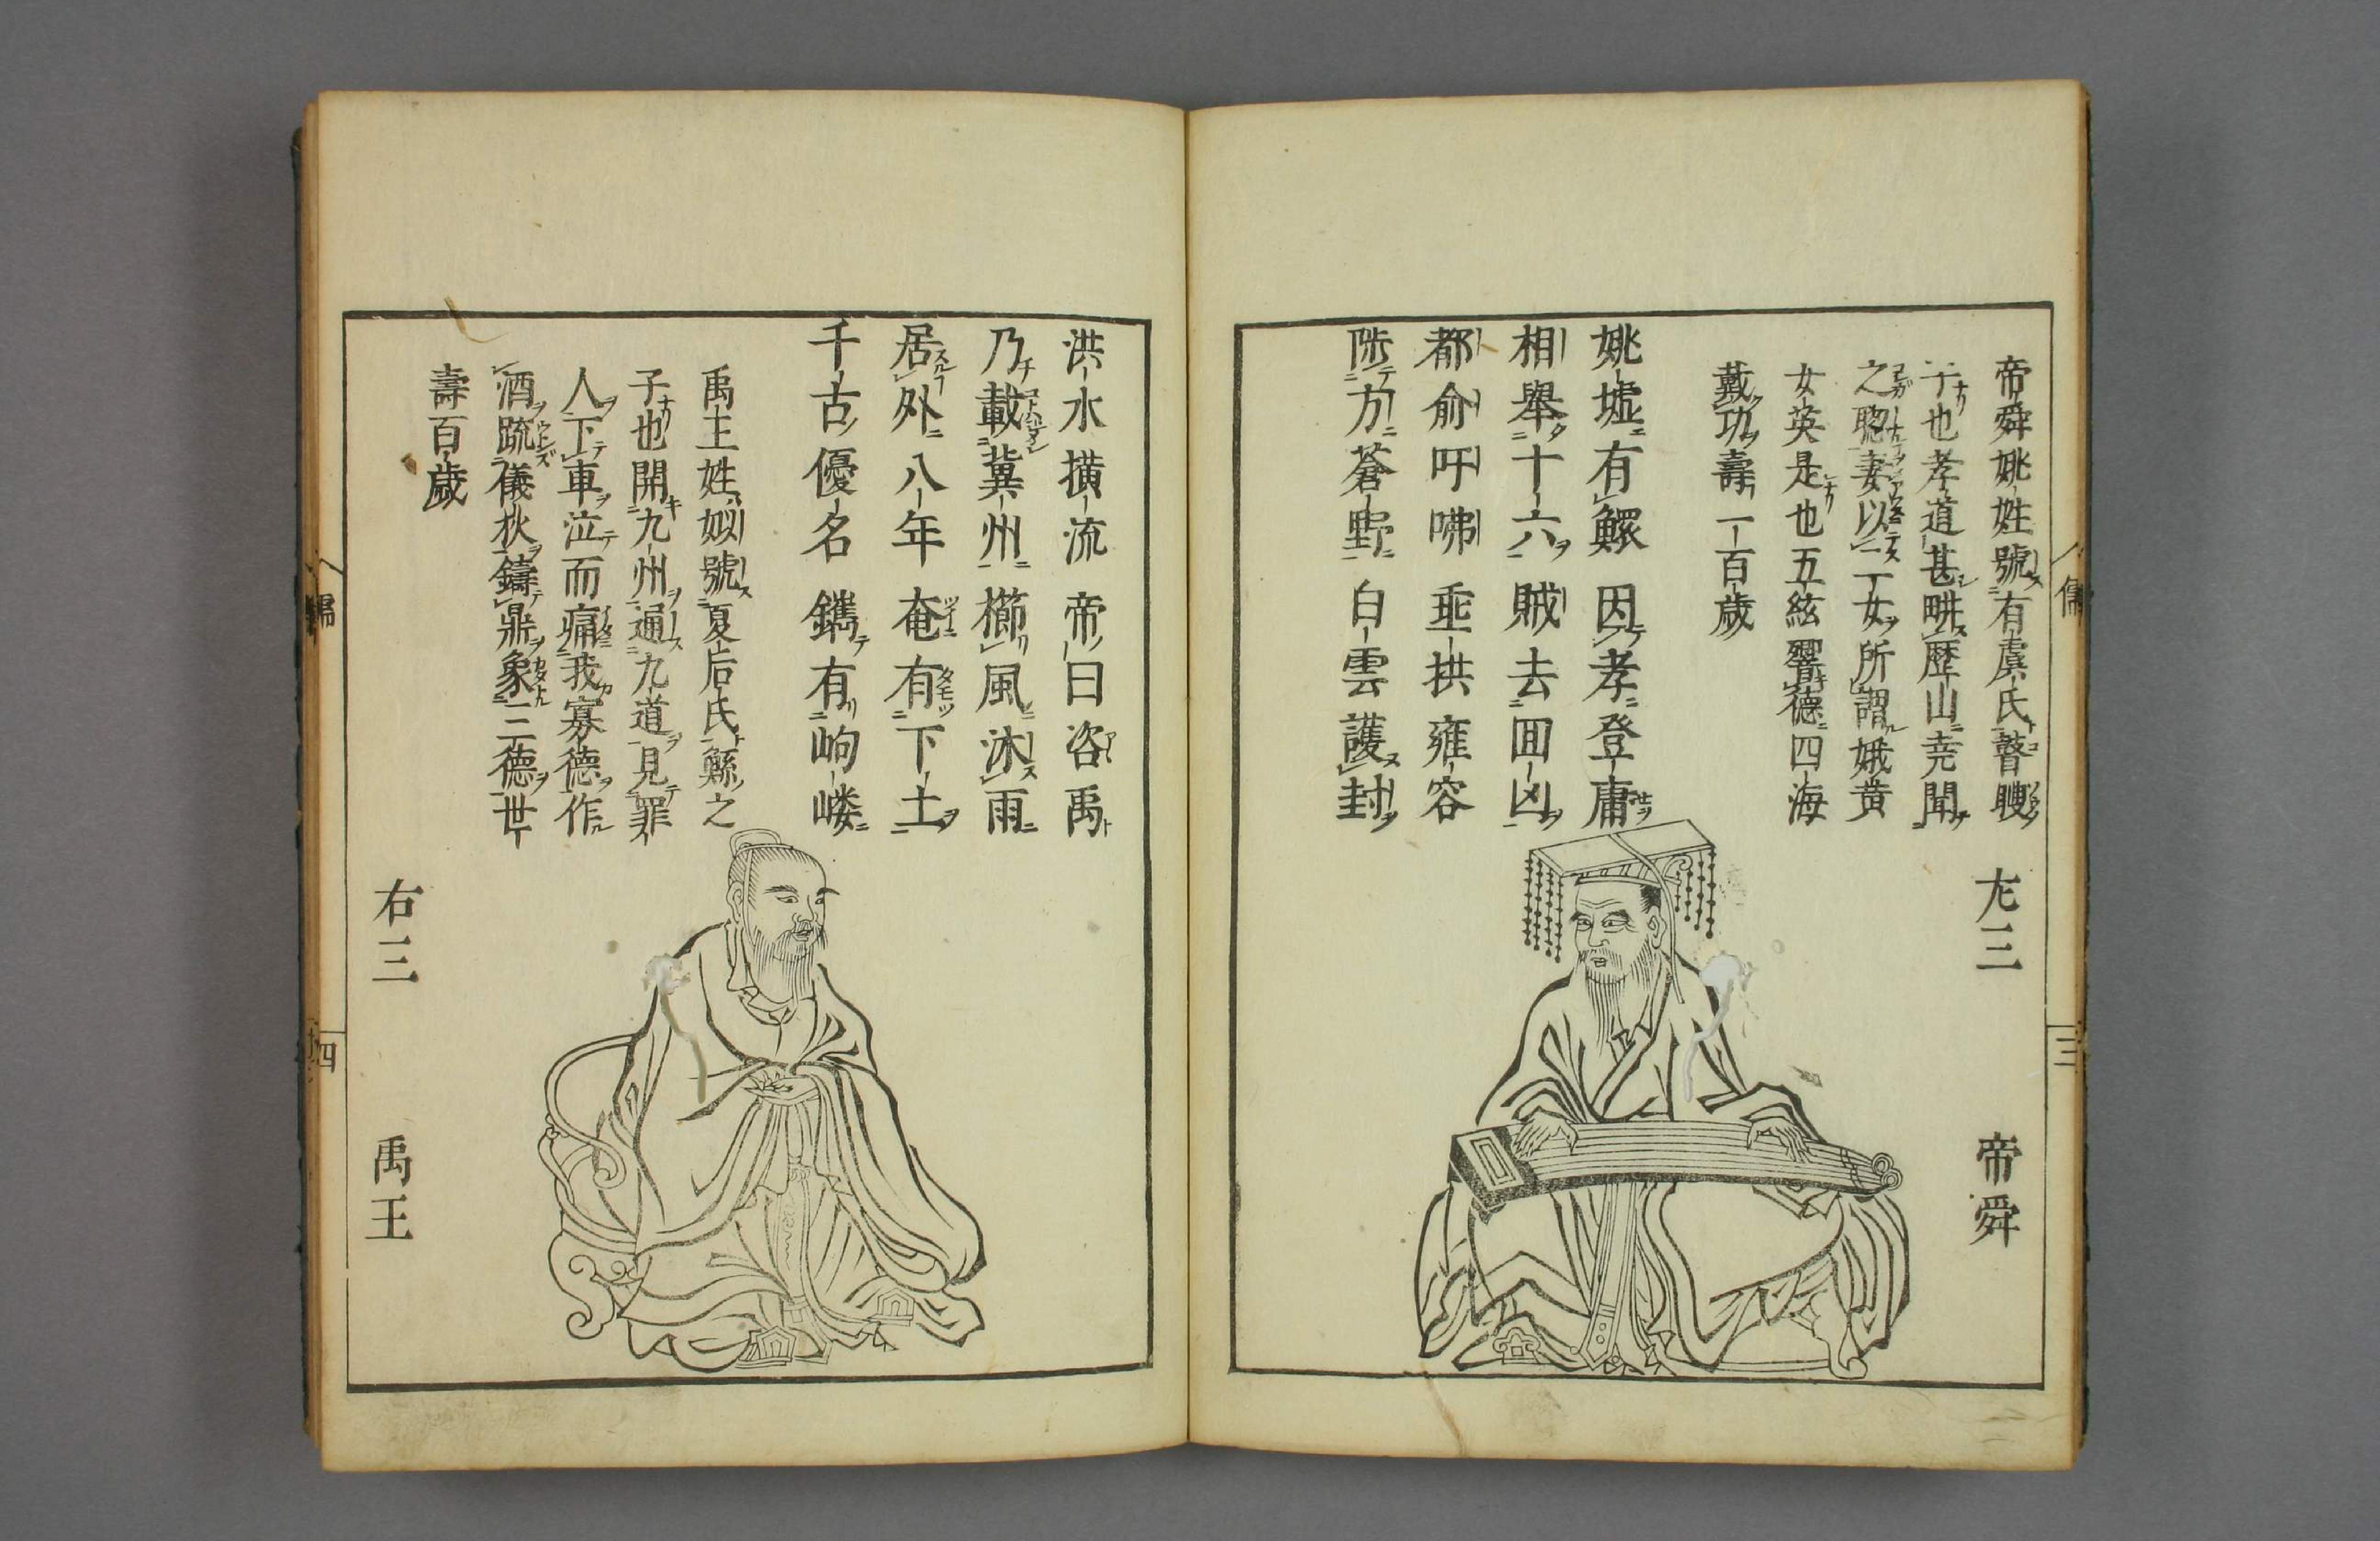 帝舜姚姓號有虞氏瞽瞍
子也孝道甚畊歴山堯聞
之聰妻以二女所謂娥黄
女英是也五絃響德四海
戴功壽一百歲
姚墟有鰥因孝登庸
相舉十六賊去四凶
都俞吁咈垂拱雍容
陟方蒼野白雲護封
左三
帝舜
儒
三
洪水横流帝曰咨禹
乃載冀州櫛風沐雨
居外八年奄有下土
千古優名鐫有岣嶁
禹王姓姒號夏后氏鯀之
子也開九州通九道見罪
人下車泣而痛我寡德作
酒疏儀狄鑄鼎象三德世
壽百歲
右三
禹王
儒
四